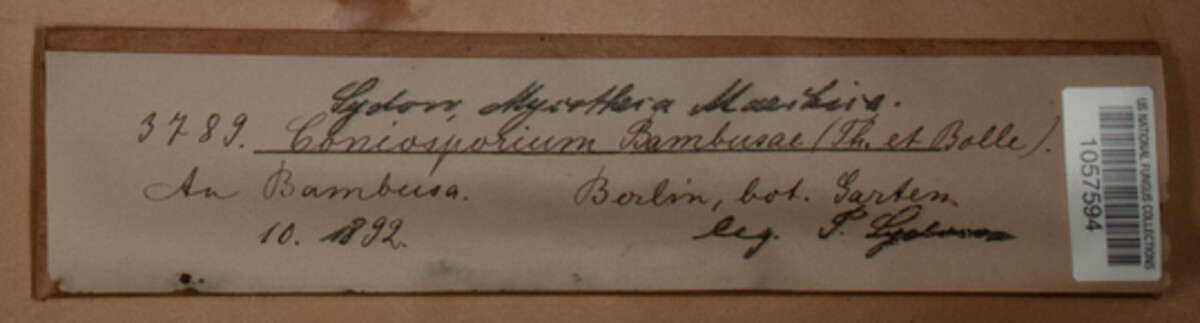 Sydow, Mycotheca Marchica.
3789. Coniosporium Bambusae (Th. et Bolle).
An Bambusa. Berlin, bot. Garten
10. 1892. leg. P. Sydow
US NATIONAL FUNGUS COLLECTIONS
1057594